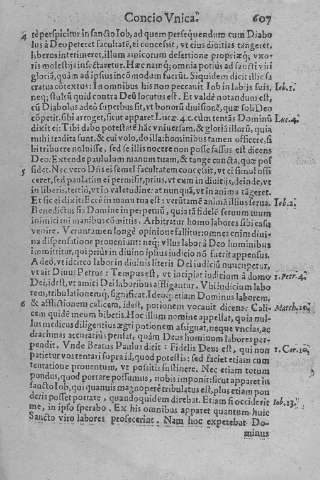 Concio Vnica. 607
4 tè perspicitur in sancto Iob, ad quem persequendum cum Diabo
lus à Deo peteret facultatē, ei concessit, vt eius diuitias tangeret,
liberos interimeret, illum amicorum desertione propriæq; vxo-
ris molestijs insectaretur. Hæc tamē; omnia potius ad sancti viri
gloriā, quàm ad ipsius incōmodam facrūt. Siquidem dicit illic sa
cratus obtextus: In omnibus his non peccauit Iob in labijs suis, Iob. 1.
neq; stultū quid contra Deū locutus est. Et valdè notandum est,
cū Diabolus adeò superbus sit, vt bonorū diuisionē, quæ soli Deo
cōpetit, sibi arroget, sicut apparet Lucæ .4. c. cum tentās Dominū Luc. 4.
dixit ei: Tibi dabo potestatē hāc vniuersam, & gloriā illorū, quia
mihi tradita sunt, & cui volo, do illa: hominibus tamen officere, si
bi tribuere noluisse, sed se illis nocere non posse fassus est dicens
Deo: Extende paululum manum tuam, & tange cuncta, quæ pos
5 sidet. Nec verò Dñs ei semel facultatem concessit, vt ei simul offi
ceret, sed paulatim ei permisit, prius, vt eum in diuitijs, deinde, vt
in liberis, tertiò, vt in valetudine: at nunquā, vt in anima tāgeret.
Et sic ei dixit: Ecce in manu tua est: verūtamē animā illius serua. Iob. 2.
Benedictus sis Domine in perpetuū, qui tā fidelē seruum tuum
inimici tui manibus cōmittis. Arbitratur homo labores sibi casu
venire. Verumtamen longè opinione fallitur: omnes enim diui
na dispensatione proueniunt: neq; vllus labor à Deo hominibus
immittitur, qui priùs in diuino ipsius iudicio nō fuerit appensus.
Adeò, vt idcirco labor in diuinis literis Dei iudiciū nuncupetur,
vt ait Diuus Petrus: Tempus est, vt incipiat iudicium à domo 1. Petr. 4.
Dei, id est, vt amici Dei laboribus affligantur. Vbi iudicium labo
rem, tribulationemq; significat. Ideoq; etiam Dominus laborem,
6 & afflictionem calicem, idest, potionem vocauit dicens: Cali- Matth. 20.
cem quidē meum bibetis. Hoc illum nomine appellat, quia nul-
lus medicus diligentius ægri potionem assignat, neque vncias, ac
drachmas accuratiùs pensat, quàm Deus hominum labores per-
pendit. Vnde Beatus Paulus dicit: Fidelis Deus est, qui non 1. Cor. 10.
patietur vos tentari supra id, quod potestis: sed faciet etiam cum
tentatione prouentum, vt possitis sustinere. Nec etiam totum
pondus, quod portare possumus, nobis imponit: sicut apparet in
sancto Iob, qui quamuis magnopere tribulatus est, plus etiam pon
deris posset portare, quandoquidem dicebat. Etiam si occiderit Iob. 13.
me, in ipso sperabo. Ex his omnibus apparet quantum huic
Sancto viro labores profecerint. Nam hoc expetebat Do-
minus